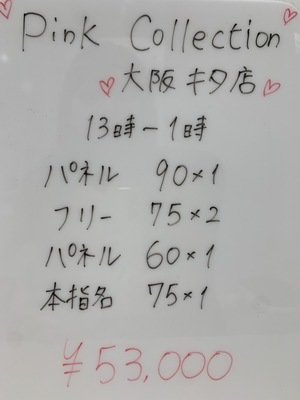 Pink Collection
大阪キタ店
13時-1時
パネル 90×1
フリー 75×2
パネル 60×1
本指名 75×1
¥53,000